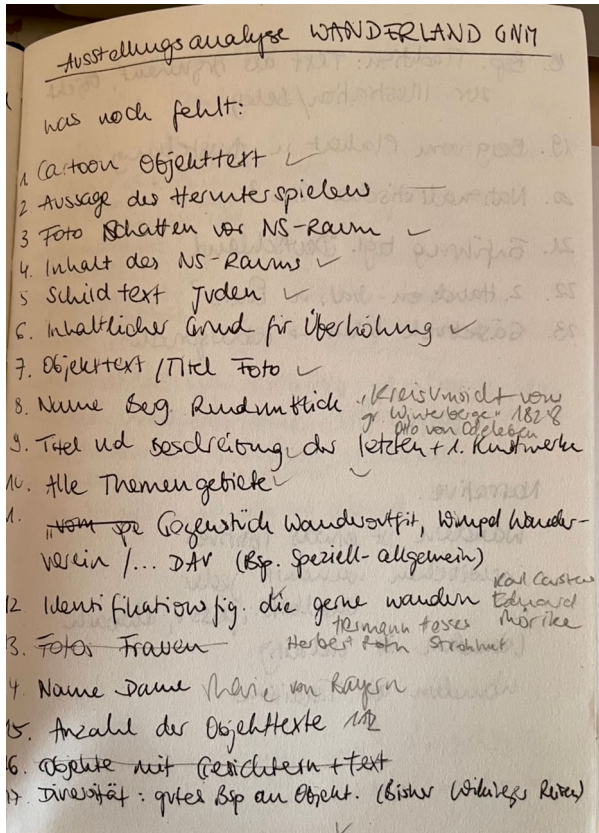 Ausstellungsanalyse WANDERLAND GNM
was noch fehlt:
1 Cartoon Objekttext ✓
2 Aussage des Herunterspielens —
3 Foto Schatten vor NS-Raum ✓
4. Inhalt des NS-Raums ✓
5 Schildtext Juden ✓
6. Inhaltlicher Grund für Überhöhung ✓
7. Objekttext / Titel Foto ✓
8. Name Berg Rundumblick "Kreisumsicht vom
gr. Winterberge" 1828
Otto von Odeleben
9. Titel und Beschreibung der letzten + 1. Kunstwerke ✓
10. Alle Themengebiete ✓
1. Gegenstück Wanderoutfit, Wimpel Wander-
verein /... DAV (Bsp. speziell-allgemein)
12 Identifikationsfig. die gerne wandern Karl Carstens
Eduard Mörike
Hermann Herbert Roth Strohhut
3. Fotos Frauen
4. Name Dame Marie von Bayern
15. Anzahl der Objekttexte 112
6. Objekte mit Gesichtern + Text
17. Diversität: gutes Bsp an Objekt. (Bisher Reisen)
✓